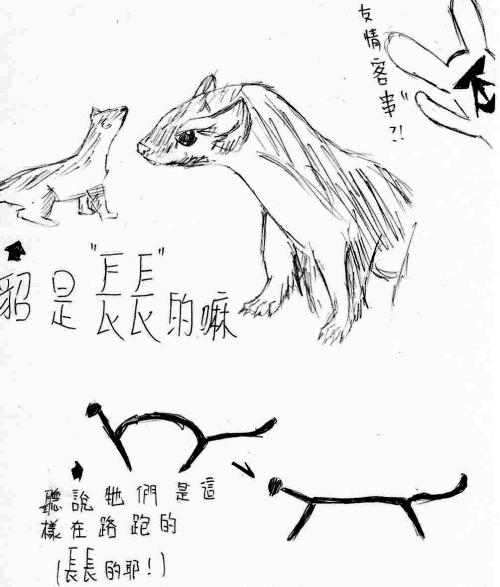 友情客串"?!
貂是"長長"的嘛
聽說牠們是這
樣在路跑的
(長長的耶!)